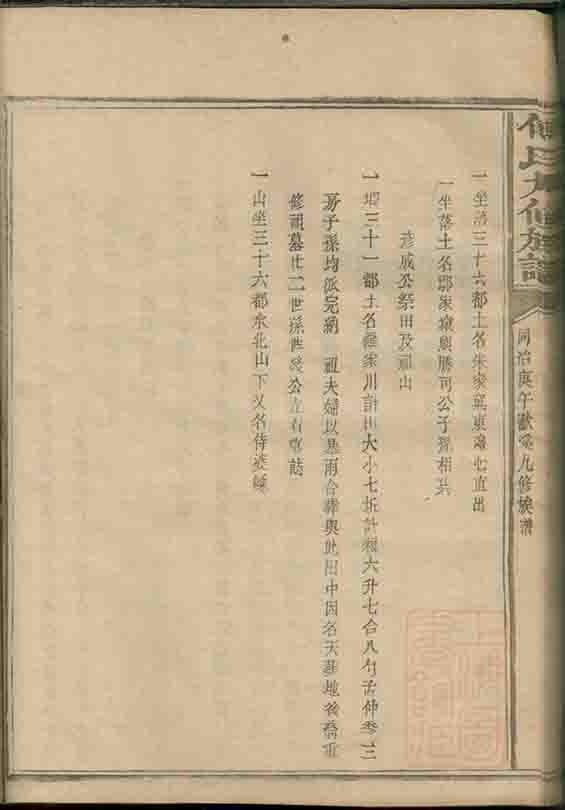 氏九修族譜
同治庚午 九修族譜
一坐落三十六都土名朱家 東 七直出
一坐落土名 家 與勝司公子孫相共
 成公祭田及祖山
一 三十一都土名 家川計田大小七坵計糧六升七合八勺孟仲季三
房子孫均派完納 祖夫婦以 雨合葬與此田中因名天葬地後 重
修祖墓廿二世孫世 公立石 誌
一山坐三十六都水北山下又名侍婆
上海圖書館藏